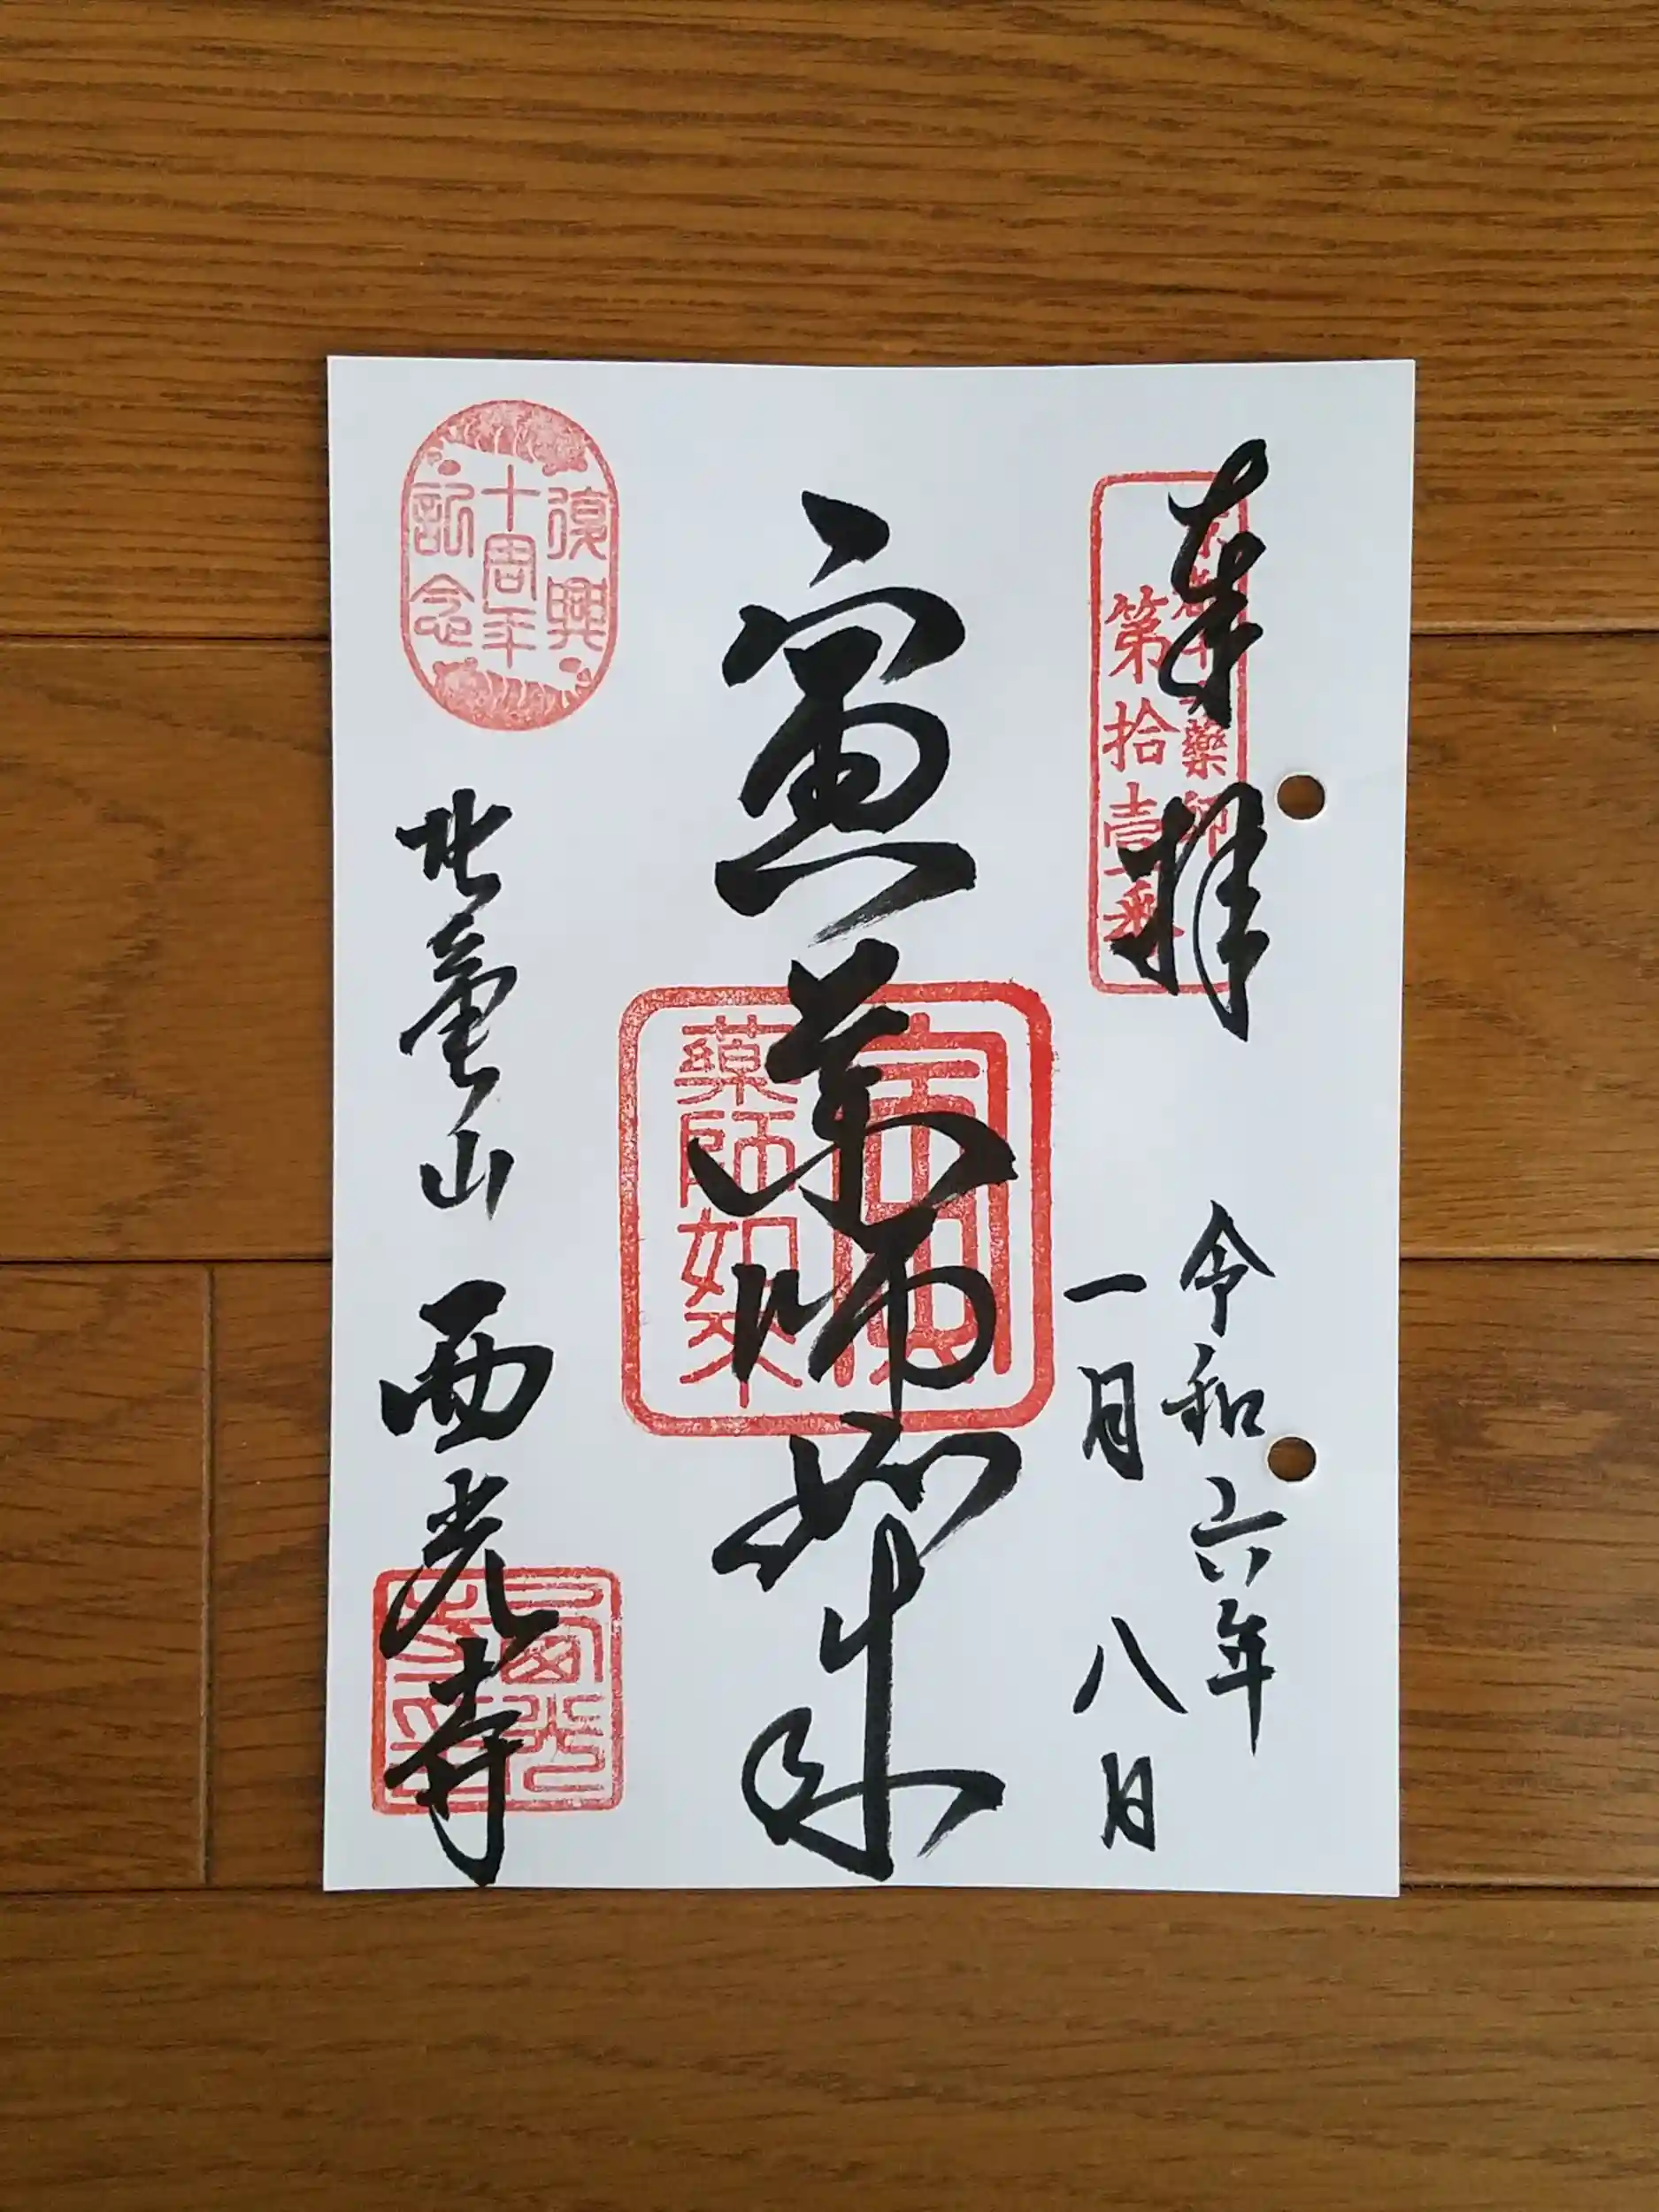 奉拝
第拾壹番
令和六年
一月八日
寅薬師如来
寅
薬師如来
復興
十周年
記念
北亀山
西光寺
西光
寺印